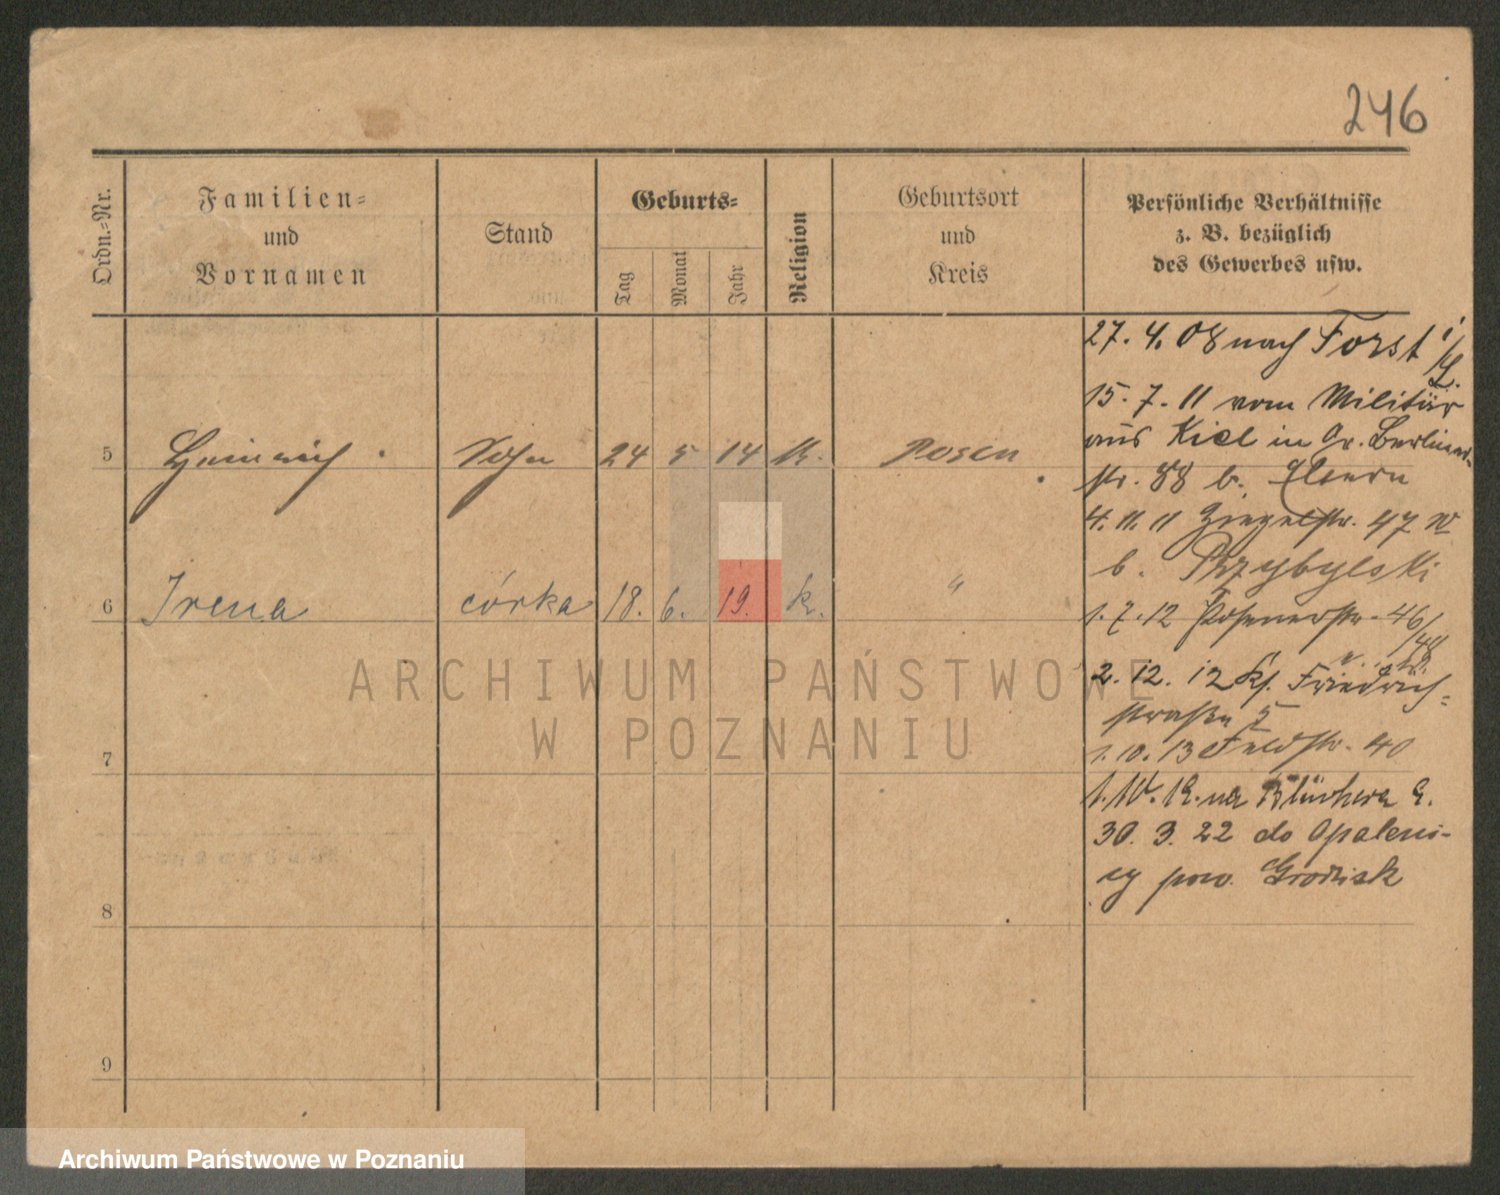 246
Ordn.-Nr.
Familien-
und
Vornamen
Stand
Geburts-
Tag
Monat
Jahr
Religion
Geburtsort
und
Kreis
Persönliche Verhältnisse
z. B. bezüglich
des Gewerbes usw.
27. 4. 08 nach Forst i/L.
15. 7. 11 vom Militär
aus Kiel in Gr. Berliner-
str. 88 b. Eltern
5 Heinrich Sohn 24 5 14 K. Posen
4. 11. 11 Ziegelstr. 47 W
b. Przybylski
6 Irena córka 18. 6. 19. k. "
1. 7. 12 Posenerstr. 46/48
2. 12. 12 Ks. Friedrich-
straße 5
1. 10. 13 Feldstr. 40
7
na Blüchera
30. 3. 22 do Opaleni-
cy pow. Grodzisk
8
9
ARCHIWUM PAŃSTWOWE
W POZNANIU
Archiwum Państwowe w Poznaniu